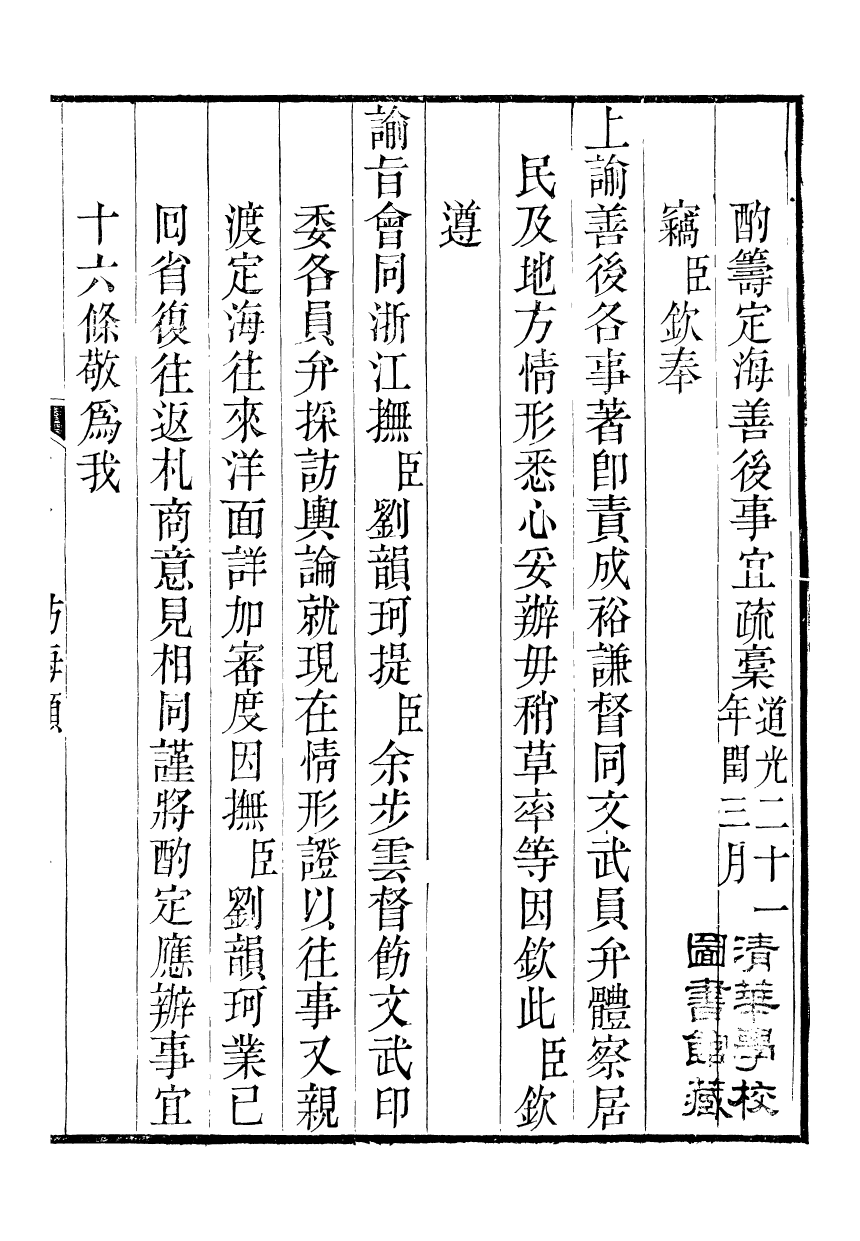 酌籌定海善後事宜疏稾道光二十一年閏三月
清華學校
圖書館藏
竊臣欽奉
上諭善後各事著卽責成裕謙督同文武員弁體察居
民及地方情形悉心妥辦毋稍草率等因欽此臣欽
遵
諭旨會同浙江撫臣劉韻珂提臣余步雲督飭文武印
委各員弁採訪輿論就現在情形證以往事又親
渡定海往來洋面詳加審度因撫臣劉韻珂業已
回省復往返札商意見相同謹將酌定應辦事宜
十六條敬爲我